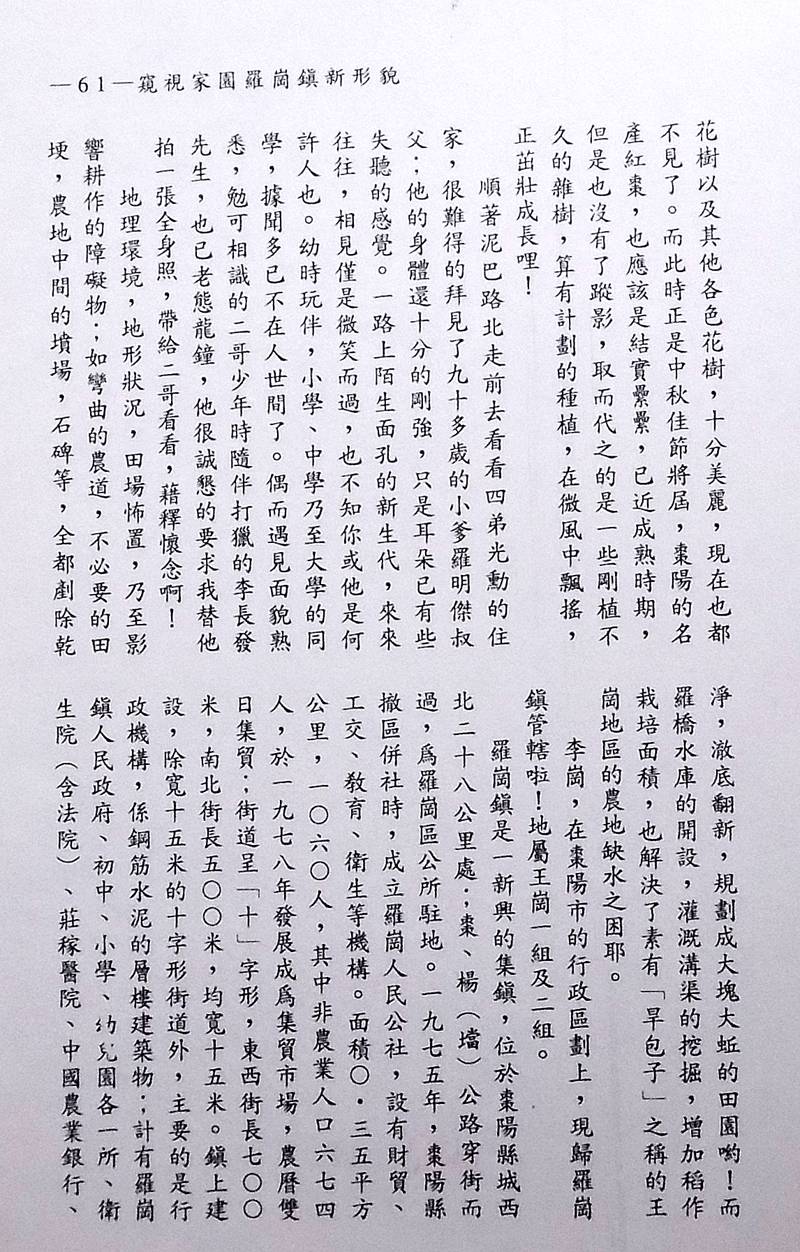 —61—窺視家園羅崗鎮新形貌
花樹以及其他各色花樹，十分美麗，現在也都
不見了。而此時正是中秋佳節將屆，棗陽的名
產紅棗，也應該是結實纍纍，已近成熟時期，
但是也沒有了蹤影，取而代之的是一些剛植不
久的雜樹，算有計劃的種植，在微風中飄搖，
正茁壯成長哩！
順著泥巴路北走前去看看四弟光勳的住
家，很難得的拜見了九十多歲的小爹羅明傑叔
父；他的身體還十分的剛強，只是耳朵已有些
失聽的感覺。一路上陌生面孔的新生代，來來
往往，相見僅是微笑而過，也不知你或他是何
許人也。幼時玩伴，小學、中學乃至大學的同
學，據聞多已不在人世間了。偶而遇見面貌熟
悉，勉可相識的二哥少年時隨伴打獵的李長發
先生，也已老態龍鐘，他很誠懇的要求我替他
拍一張全身照，帶給二哥看看，藉釋懷念啊！
地理環境，地形狀況，田場怖置，乃至影
響耕作的障礙物；如彎曲的農道，不必要的田
埂，農地中間的墳場，石碑等，全都剷除乾
淨，澈底翻新，規劃成大塊大坵的田園喲！而
羅橋水庫的開設，灌溉溝渠的挖掘，增加稻作
栽培面積，也解決了素有「旱包子」之稱的王
崗地區的農地缺水之困耶。
李崗，在棗陽市的行政區劃上，現歸羅崗
鎮管轄啦！地屬王崗一組及二組。
羅崗鎮是一新興的集鎮，位於棗陽縣城西
北二十八公里處；棗、楊（壋）公路穿街而
過，爲羅崗區公所駐地。一九七五年，棗陽縣
撤區併社時，成立羅崗人民公社，設有財貿、
工交、教育、衛生等機構。面積〇・三五平方
公里，一〇六〇人，其中非農業人口六七四
人，於一九七八年發展成爲集貿市場，農曆雙
日集貿；街道呈「十」字形，東西街長七〇〇
米，南北街長五〇〇米，均寬十五米。鎮上建
設，除寬十五米的十字形街道外，主要的是行
政機構，係鋼筋水泥的層樓建築物；計有羅崗
鎮人民政府、初中、小學、幼兒園各一所、衛
生院（含法院）、莊稼醫院、中國農業銀行、